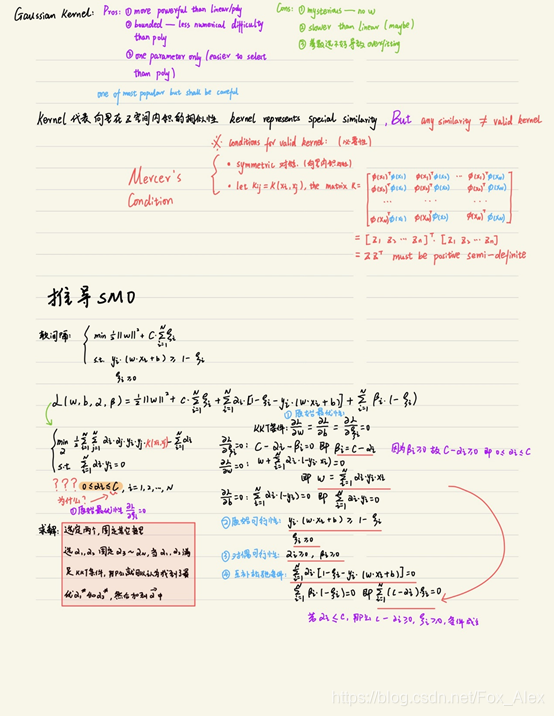 Gaussian Kernel: Pros: ① more powerful than linear/poly
② bounded — less numerical difficulty than poly
③ one parameter only (easier to select than poly)
Cons: ① mysterious — no w
② slower than linear (maybe)
③ 参数选不好导致 overfitting
one of most popular but shall be careful
Kernel 代表向量在 Z 空间内积的相似性 kernel represents special similarity, But any similarity ≠ valid kernel
※ conditions for valid kernel: (必要性)
Mercer's Condition
• symmetric 对称
• let Kij = K(xi, xj), the matrix K =
φ(x1)ᵀφ(x1) φ(x1)ᵀφ(x2) ··· φ(x1)ᵀφ(xN)
φ(x2)ᵀφ(x1) φ(x2)ᵀφ(x2) ··· φ(x2)ᵀφ(xN)
··· ··· ···
φ(xN)ᵀφ(x1) φ(xN)ᵀφ(x2) ··· φ(xN)ᵀφ(xN)
= [z1 z2 ··· zn]ᵀ · [z1 z2 ··· zn]
= ZZᵀ must be positive semi-definite
推导 SMO
软间隔: min ½||w||² + C·∑ξi
s.t. yi·(w·xi+b) ≥ 1 - ξi
ξi ≥ 0
L(w, b, α, β) = ½||w||² + C·∑ξi + ∑αi·[1-ξi-yi·(w·xi+b)] + ∑βi·(-ξi)
min ½ ∑∑ αi·αj·yi·yj·K(xi,xj) - ∑αi
s.t. ∑αi·yi = 0
??? 0≤αi≤C, i=1,2,..., N
为什么?
① 原始最优性 ∂L/∂ξi
① 原始最优性:
KKT条件: ∂L/∂w = ∂L/∂b = ∂L/∂ξi = 0
∂L/∂ξi = 0: C-αi-βi=0 即 βi=C-αi 因为βi≥0 故 C-αi≥0 即 0≤αi≤C
∂L/∂w = 0: w+∑αi·(-yi·xi)=0
即 w = ∑αi·yi·xi
∂L/∂b = 0: ∑αi·(-yi)=0 即 ∑αi·yi=0
② 原始可行性: yi·(w·xi+b) ≥ 1-ξi
ξi ≥ 0
③ 对偶可行性: αi≥0, βi≥0
④ 互补松弛条件: ∑αi·[1-ξi-yi·(w·xi+b)]=0
∑βi·(-ξi)=0 即 ∑(C-αi)ξi=0
若αi≤C, 即 C-αi≥0, ξi≥0, 条件成立
求解: 选定两个, 固定其它变量
选 α1, α2 固定 α3~αN, 当 α1, α2 满
足 KKT 条件, 就可以认为找到了最
优 α1* 和 α2*
https://blog.csdn.net/Fox_Alex